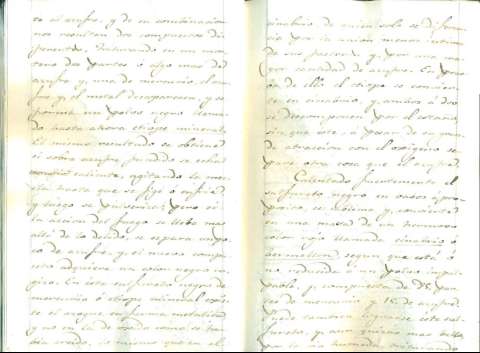 to al azufre, y de su combinacion
nos resultan dos compuestos di-
ferentes. Triturando en un mor-
tero dos partes ó algo mas de
azufre y una de mercurio, el azu-
fre y el metal desaparecen, y se
forma un polvo negro llama-
do hasta ahora etiope mineral.
El mismo resultado se obtiene
si sobre azufre fundido se echa
mercurio caliente, agitando la mez-
cla hasta que se fije ó enfrie
y luego se pulveriza; pero si
la accion del fuego se lleba mas
allá de lo debido, se separa un po-
co de azufre, y el nuevo compu-
esto adquiere un color negro ro-
gizo. En este sulfureto negro de
mercurio ó etiope mineral
se el azogue en forma metalica
y no en la de oxido como se ha
creido, lo mismo que en el
cinabrio de quien solo se diferen-
cia por la union menos intima
de sus partes, y por una ma-
yor cantidad de azufre. En
de ello el etiope se convier-
te en cinabrio, y ambos á dos
se descomponen por el
sin que este, á pesar de su gran-
de atraccion con el oxigeno se-
pare otra cosa que el azufre.
Calentado fuertemente el
sulfureto negro en vasos apro-
piados, se sublima y convierte
en una masa de un hermoso
color rojo llamada cinabrio ó
bermellon, segun que está ó
no reducida á un polvo impal-
pable, y compuesta de 85 par-
tes de mercurio y 15 de azufre.
Puede tambien lograrse este sul-
fureto, y aun quizás mas bello,
por la via humeda, triturando